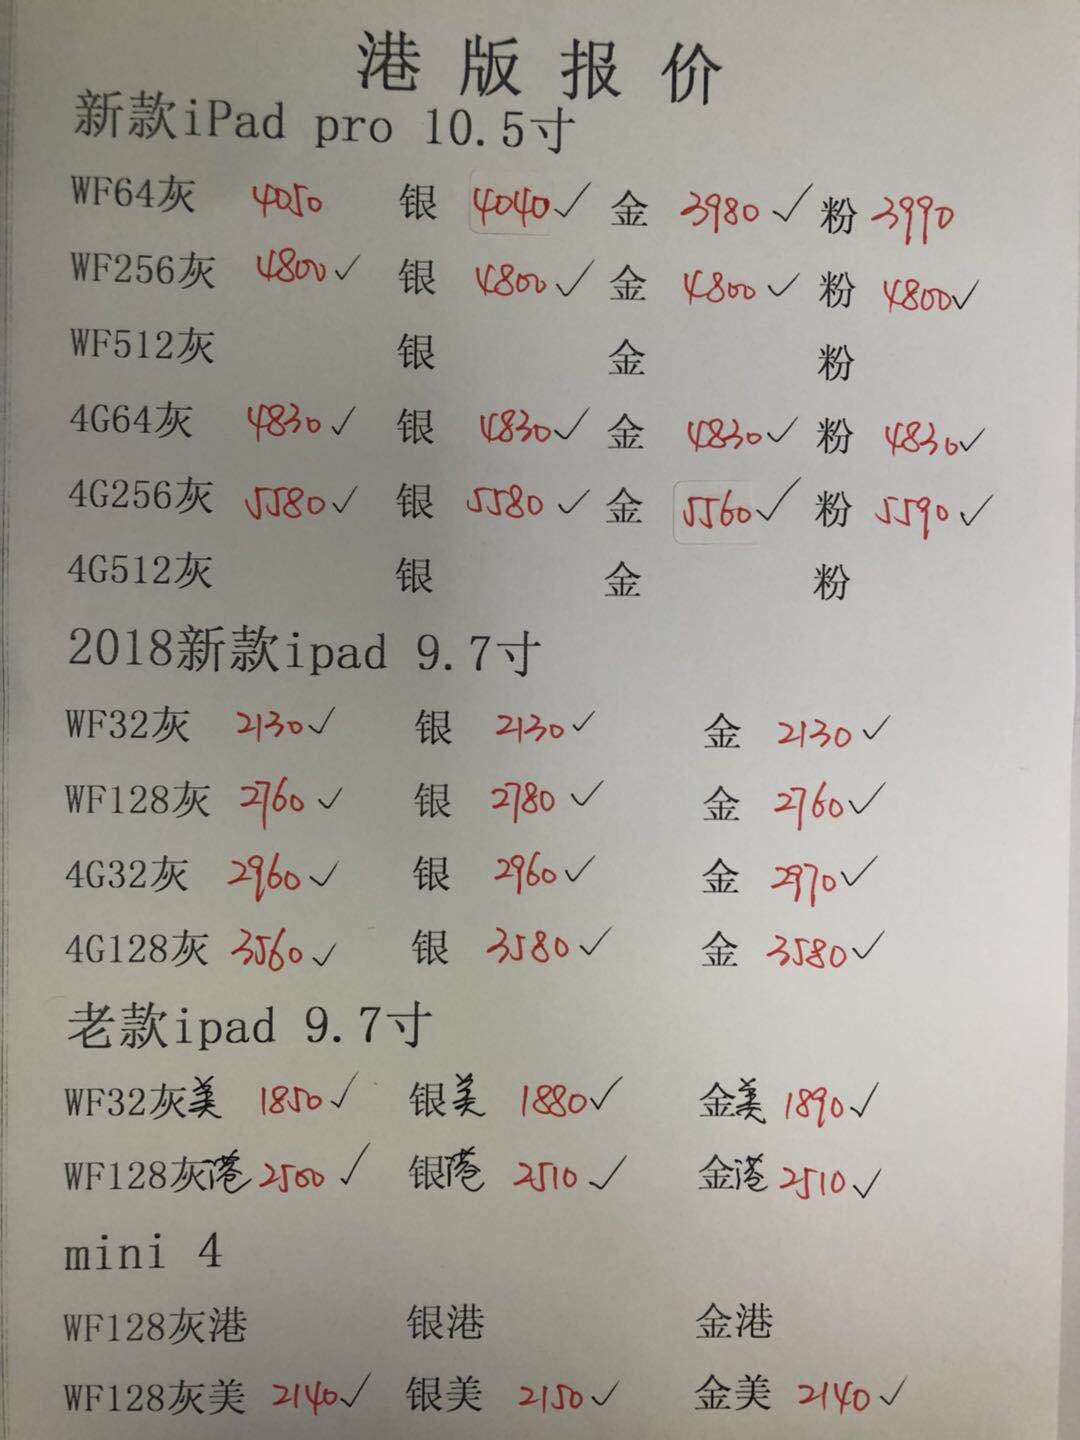 港版报价
新款iPad pro 10.5寸
WF64灰 4050 银 4040✓ 金 3980✓ 粉 3990
WF256灰 4800✓ 银 4800✓ 金 4800✓ 粉 4800✓
WF512灰 银 金 粉
4G64灰 4830✓ 银 4830✓ 金 4830✓ 粉 4830✓
4G256灰 5580✓ 银 5580✓ 金 5560✓ 粉 5590✓
4G512灰 银 金 粉
2018新款ipad 9.7寸
WF32灰 2130✓ 银 2130✓ 金 2130✓
WF128灰 2760✓ 银 2780✓ 金 2760✓
4G32灰 2960✓ 银 2960✓ 金 2970✓
4G128灰 3560✓ 银 3580✓ 金 3580✓
老款ipad 9.7寸
WF32灰美 1850✓ 银美 1880✓ 金美 1890✓
WF128灰港 2500✓ 银港 2510✓ 金港 2510✓
mini 4
WF128灰港 银港 金港
WF128灰美 2140✓ 银美 2150✓ 金美 2140✓